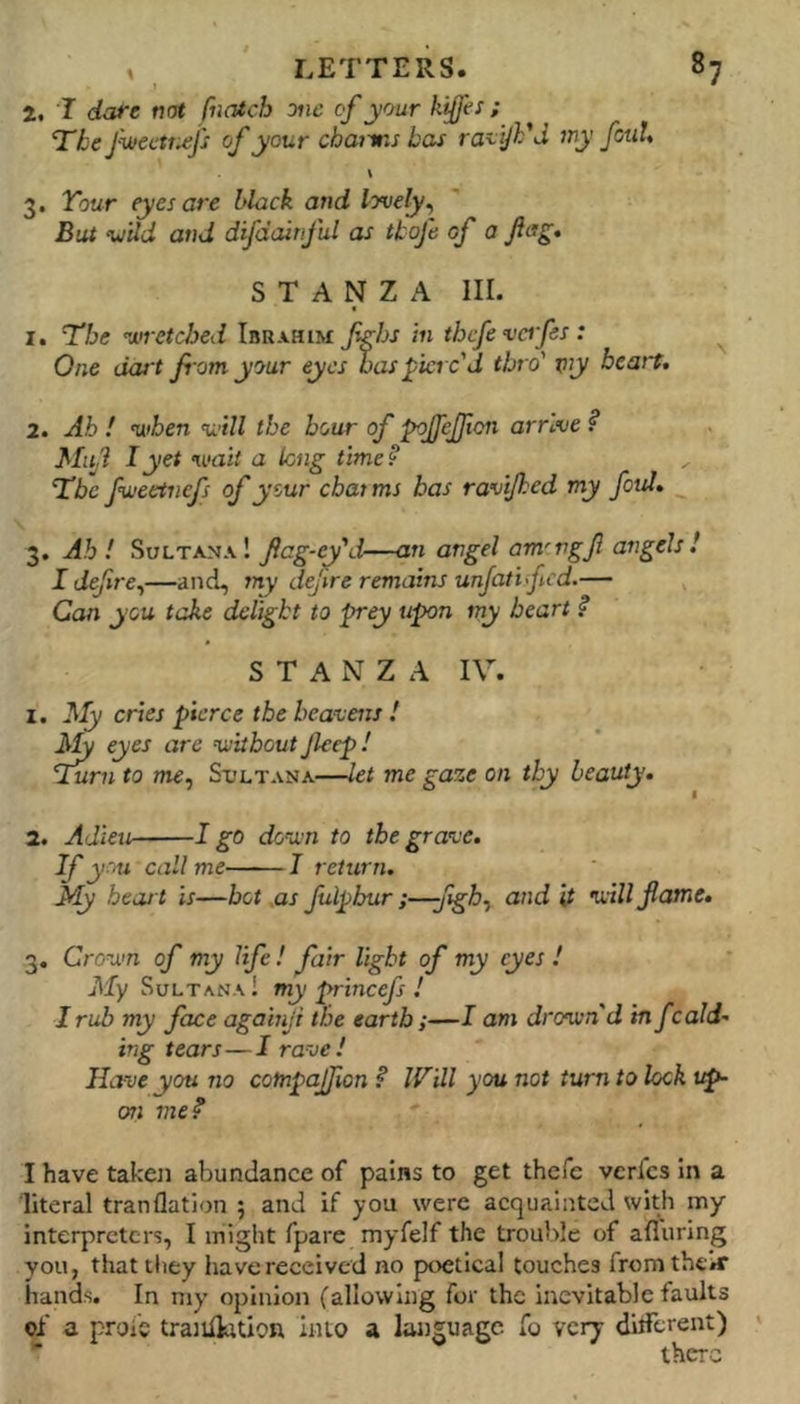 LETTERS. 87
2. I dare not ſnatch one of your kiſſes;
The ſweetneſs of your charms has raviſh'd my ſoul.
3. Your eyes are black and lovely,
But wild and diſdainful as thoſe of a ſtag.
STANZA III.
1. The wretched IBRAHIM ſighs in theſe verſes:
One dart from your eyes has pierc'd thro' my heart.
2. Ah! when will the hour of poſſeſſion arrive?
Muſt I yet wait a long time?
The ſweetneſs of your charms has raviſhed my ſoul.
3. Ah! SULTANA! ſtag-ey'd—an angel amongſt angels!
I deſire,—and, my deſire remains unſatisfied.—
Can you take delight to prey upon my heart?
STANZA IV.
1. My cries pierce the heavens!
My eyes are without ſleep!
Turn to me, SULTANA—let me gaze on thy beauty.
2. Adieu——I go down to the grave.
If you call me——I return.
My heart is—hot as ſulphur;—ſigh, and it will flame.
3. Crown of my life! fair light of my eyes!
My SULTANA! my princeſs!
I rub my face againſt the earth;—I am drown'd in ſcald-
ing tears—I rave!
Have you no compaſſion? Will you not turn to look up-
on me?
I have taken abundance of pains to get theſe verſes in a
literal tranſlation; and if you were acquainted with my
interpreters, I might ſpare myſelf the trouble of aſſuring
you, that they have received no poetical touches from their
hands. In my opinion (allowing for the inevitable faults
of a proſe tranſlation into a language ſo very different)
there